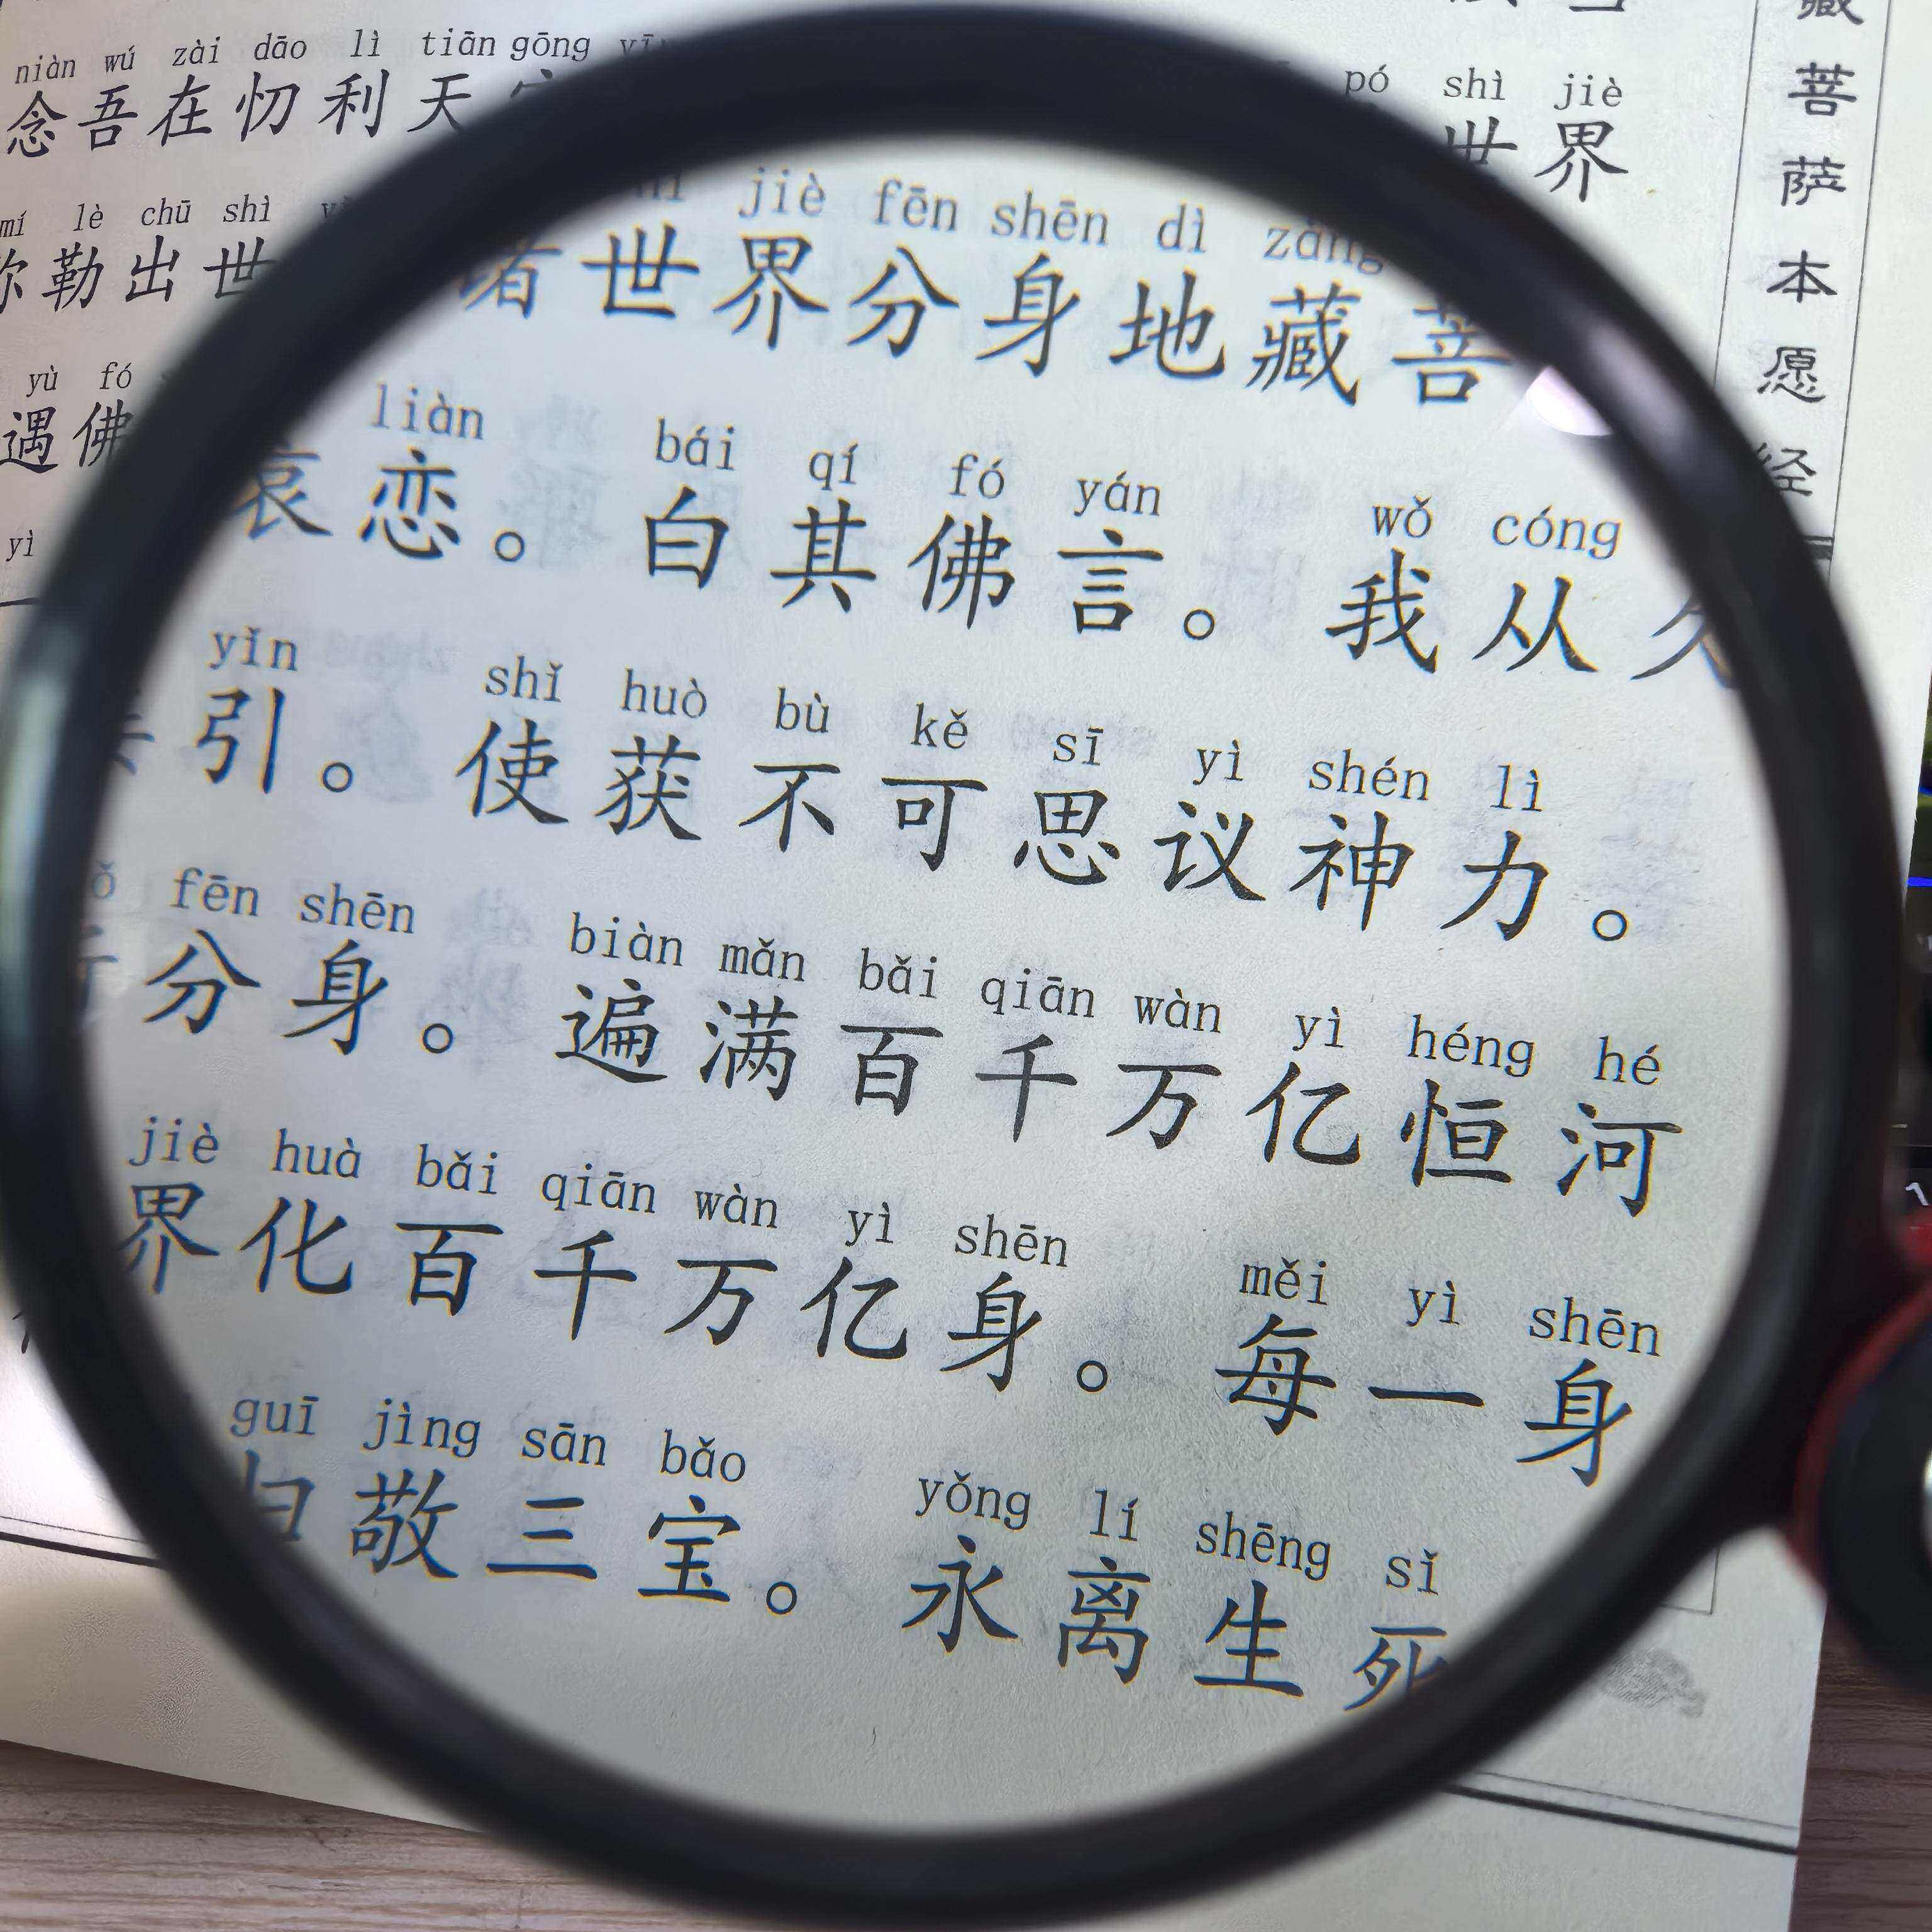 niàn wú zài dāo lì tiān gōng
念吾在忉利天
pó shì jiè
世界
mí lè chū shì
弥勒出世
yù fó
遇佛
yì
jiè fēn shēn dì zàng
诸世界分身地藏菩
liàn bái qí fó yán wǒ cóng
哀恋。白其佛言。我从久
yǐn shǐ huò bù kě sī yì shén lì
引。使获不可思议神力。
fēn shēn biàn mǎn bǎi qiān wàn yì héng hé
分身。遍满百千万亿恒河
jiè huà bǎi qiān wàn yì shēn měi yì shēn
界化百千万亿身。每一身
guī jìng sān bǎo yǒng lí shēng sǐ
归敬三宝。永离生死
藏菩萨本愿经